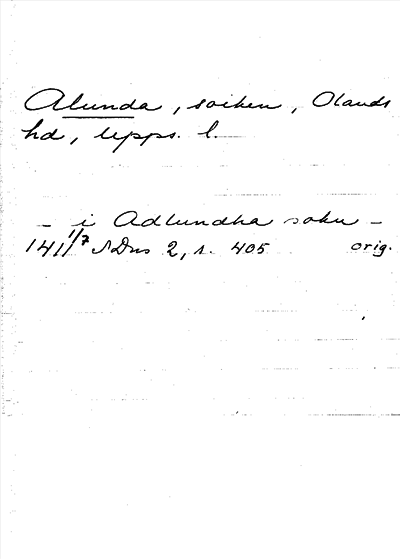 Alunda, socken, Olands
hd, Upps. l.
– i Adlundha sokn –
1411 1/7 SDns 2, s. 405 orig.